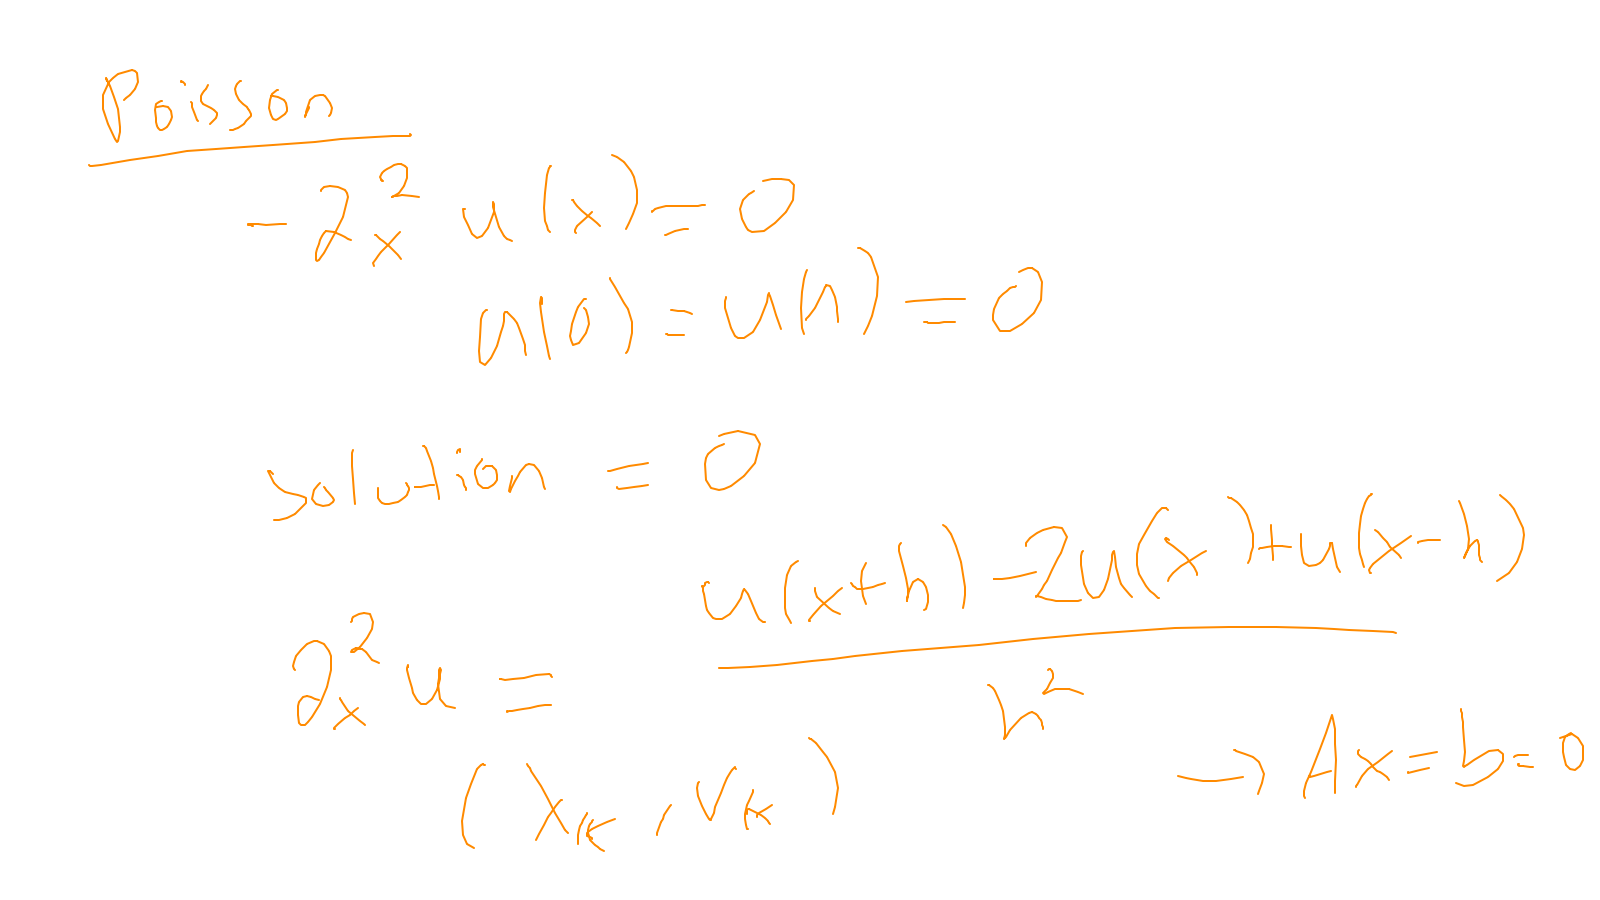 Poisson
-∂ₓ² u(x) = 0
u(0) = u(n) = 0
solution = 0
∂ₓ² u = (u(x+h) - 2u(x) + u(x-h)) / h²
→ Ax = b = 0
(λₖ, vₖ)